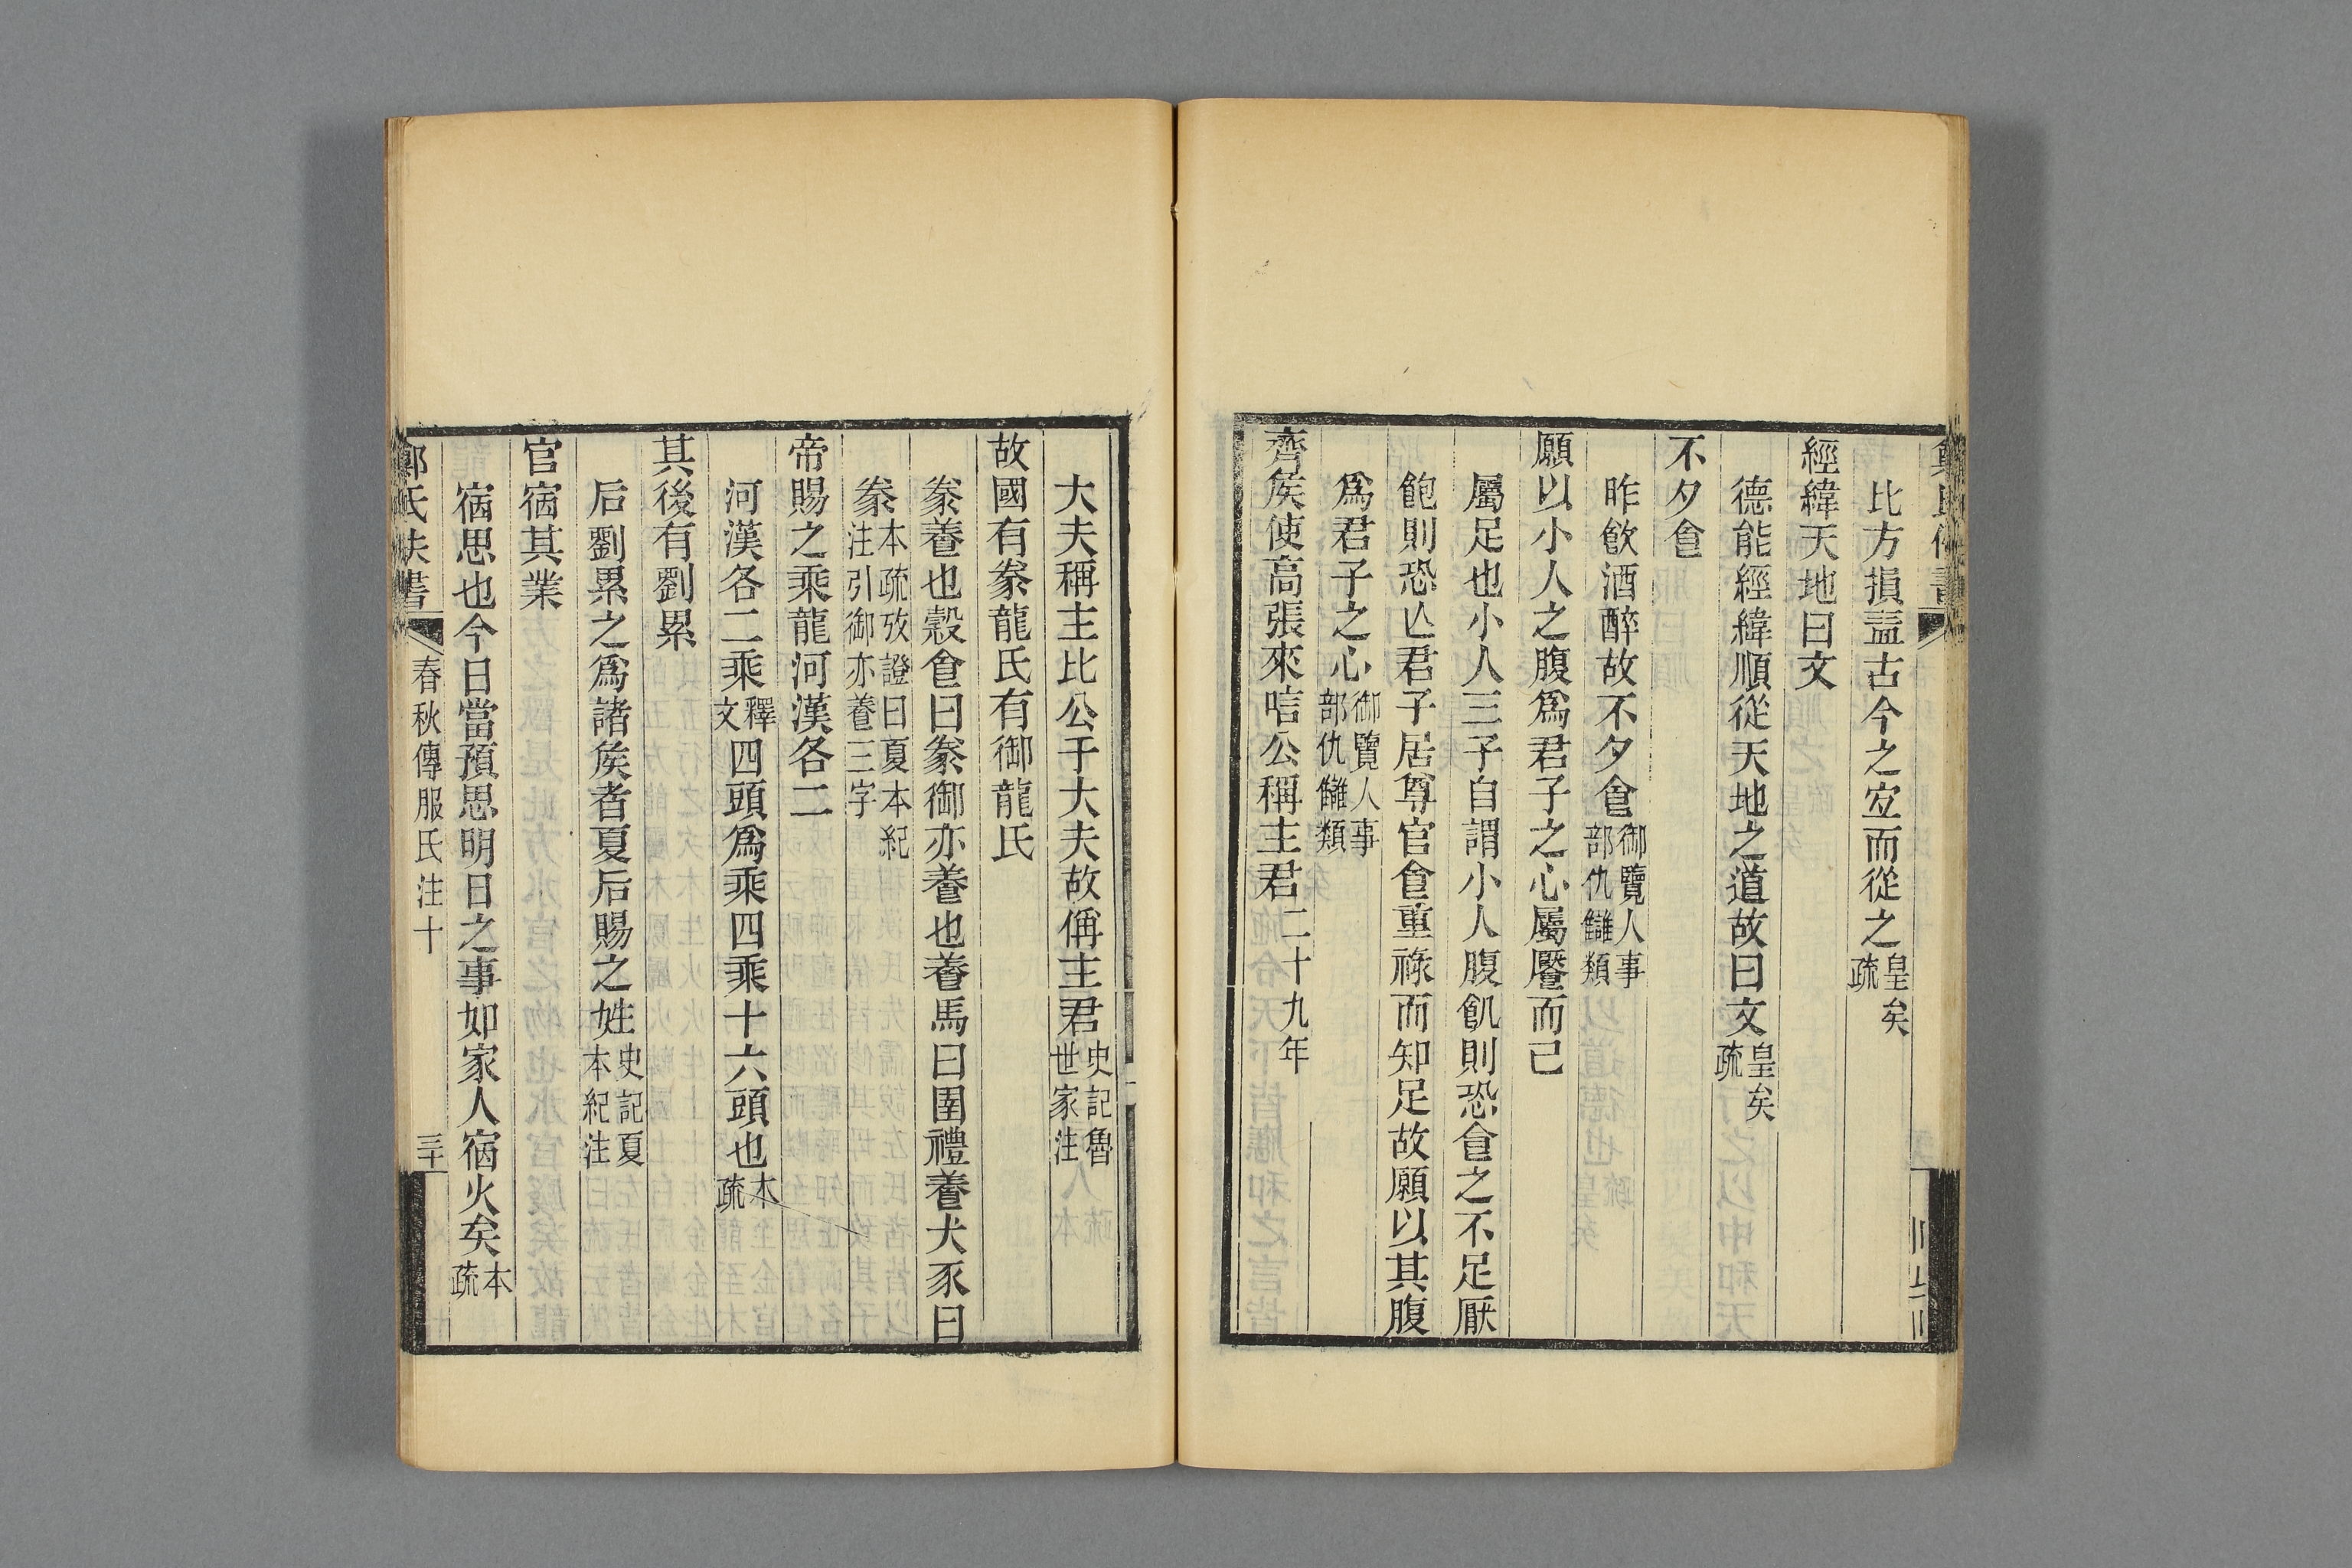 比方損益古今之宐而從之皇矣疏
經緯天地曰文
德能經緯順從天地之道故曰文皇矣疏
不夕㑹
昨飮酒醉故不夕㑹御覽人事部仇讎類
願以小人之腹爲君子之心屬饜而已
屬足也小人三子自謂小人腹飢則恐㑹之不足厭
飽則恐亾君子居尊官㑹重祿而知足故願以其腹
爲君子之心御覽人事部仇讎類
齊矦使高張來唁公稱主君二十九年
大夫稱主比公于大夫故偁主君史記魯世家注
故國有豢龍氏有御龍氏
豢養也穀㑹曰豢御亦養也養馬曰圉禮養犬豕曰
豢本疏攷證曰夏本紀注引御亦養三字
帝賜之乘龍河漢各二
河漢各二乘釋文四頭爲乘四乘十六頭也本疏
其後有劉累
后劉累之爲諸矦者夏后賜之姓史記夏本紀注
官宿其業
宿思也今日當預思明日之事如家人宿火矣本疏
鄭氏佚書 春秋傳服氏注十 三十